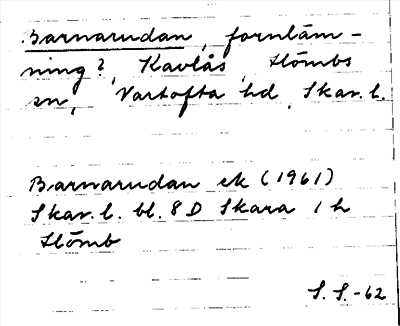 Barnarudan, fornläm-
ning?, Kavlås, Slömbs
sn, Vartofta hd, Skar. l.
Barnarudan ek (1961)
Skar. l. bl. 8 D Skara 1 h
Slömb
S. S. -62